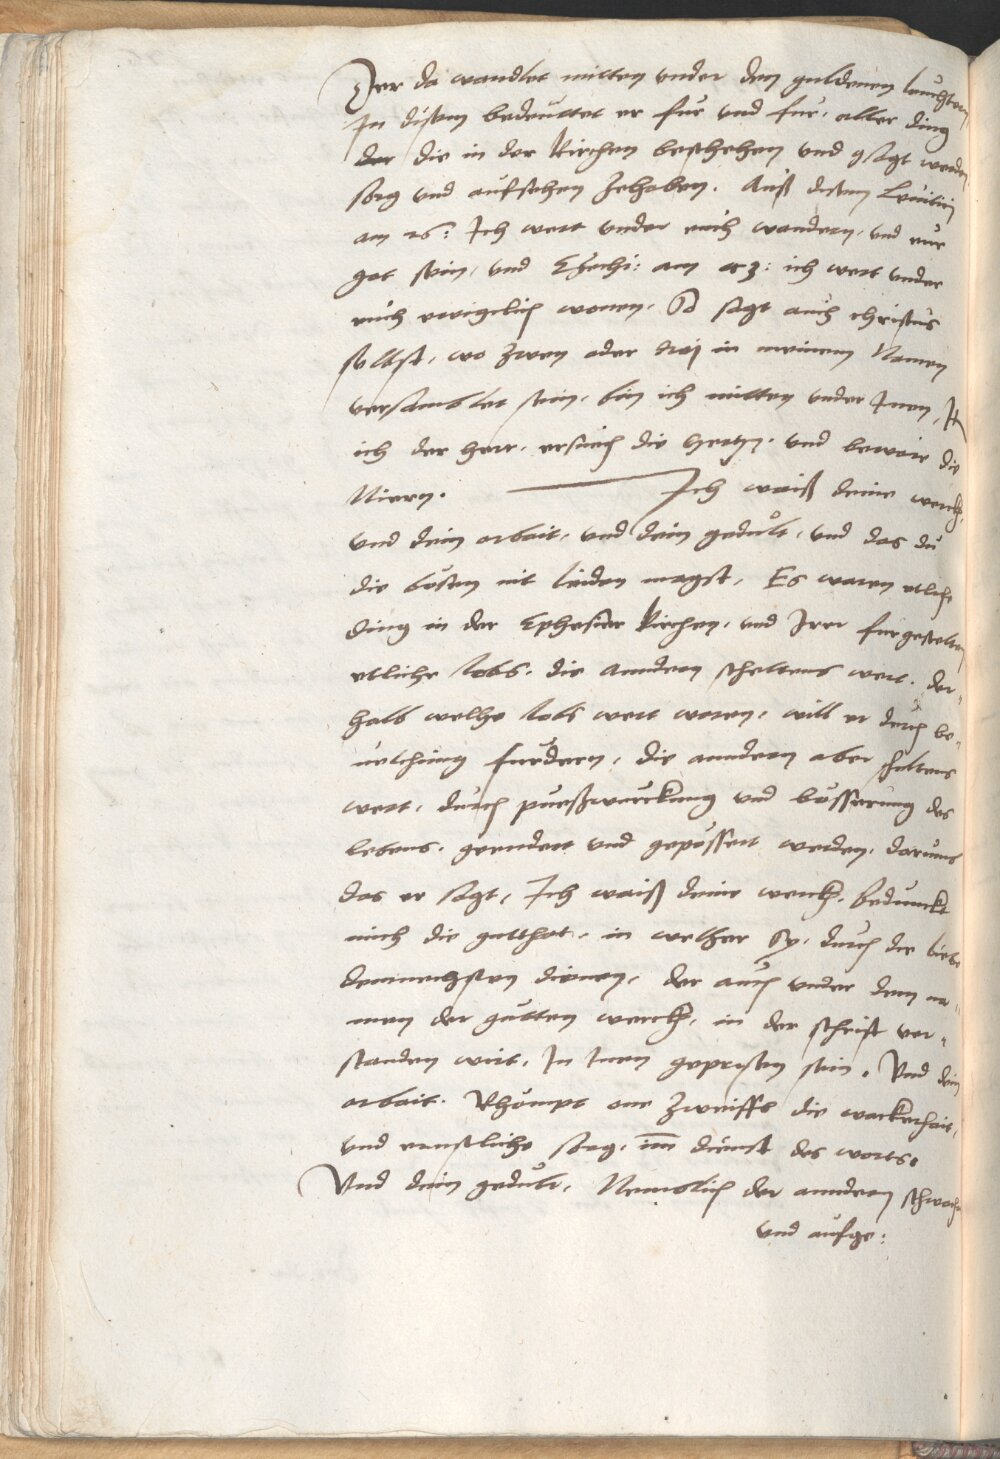 Der da wandlet mitten vnder den guldenen leuchtern
In disem bedeuttet er fur vnd fur, aller ding
der die in der kirchen beschehen vnd gsagt werden
sorg vnd aufsehen zehaben. Auß disem Leuitici
am 26: Ich wert vnder euch wandern, vnd eur
got sein, vnd Ezechi: am 43: ich wert vnder
euch ewigclich wonen. So sagt auch christus
selbst, wo zwen oder drej in meinem Namen
versamblet sein, bin ich mitten vnder Inen, It
ich der herr, ersuech die hertzn, vnd beware die
Niern. Ich waiß deine werckh,
vnd dein arbait, vnd dein gedult, vnd das du
die bosen nit leiden magst, Es waren etliche
ding in der Ephesier kirchen, vnd Irer furgesetzten
etliche lobs, die anndern scheltens wert. der-
halb welhe lobs wert waren, will er durch be-
uelhung furdern, die anndern aber scheltens
wert, durch pueßwurckung vnd bösserung des
lebens, geendert vnd gepössert werden, darumb
das er sagt, Ich waiß deine werckh, bedunckt
mich die gutthat, in welher Sy, durch die liebe
demnechsten dienen, der auch vnder dem na-
men der gutten werckh, in der schrift ver-
standen wirt, In Inen geprisen sein. Vnd dein
arbait. Rhömpt one zweiffl die wackerhait,
vnd ernstliche sorg, im dienst des worts.
Vnd dein gedult, Nemblich der anndern schwache
vnd aufge: